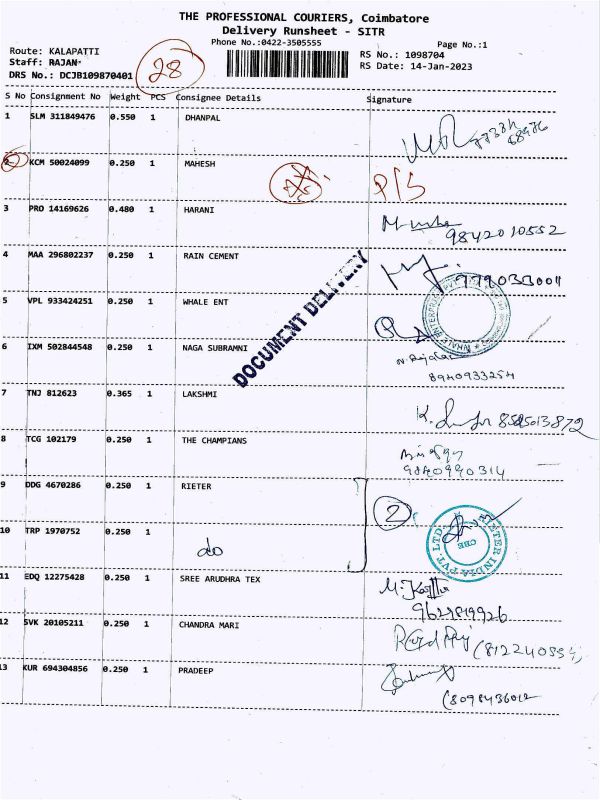 THE PROFESSIONAL COURIERS, Coimbatore
Delivery Runsheet - SITR
Phone No.:0422-3505555
Page No.:1
Route: KALAPATTI
Staff: RAJAN
DRS No.: DCJB109870401
28
RS No.: 1098704
RS Date: 14-Jan-2023
S No Consignment No Weight PCS Consignee Details Signature
1 SLM 311849476 0.550 1 DHANPAL
2 KCM 50024099 0.250 1 MAHESH P/S
3 PRO 14169626 0.480 1 HARANI
9842010552
4 MAA 296802237 0.250 1 RAIN CEMENT
DOCUMENT DELIVERY
5 VPL 933424251 0.250 1 WHALE ENT
6 IXM 502844548 0.250 1 NAGA SUBRAMNI
8940933254
7 TNJ 812623 0.365 1 LAKSHMI
8 TCG 102179 0.250 1 THE CHAMPIANS
9840990314
9 DDG 4670286 0.250 1 RIETER
2
RIETER INDIA PVT LTD
CBE
10 TRP 1970752 0.250 1 do
11 EDQ 12275428 0.250 1 SREE ARUDHRA TEX
12 SVK 20105211 0.250 1 CHANDRA MARI
13 KUR 694304856 0.250 1 PRADEEP